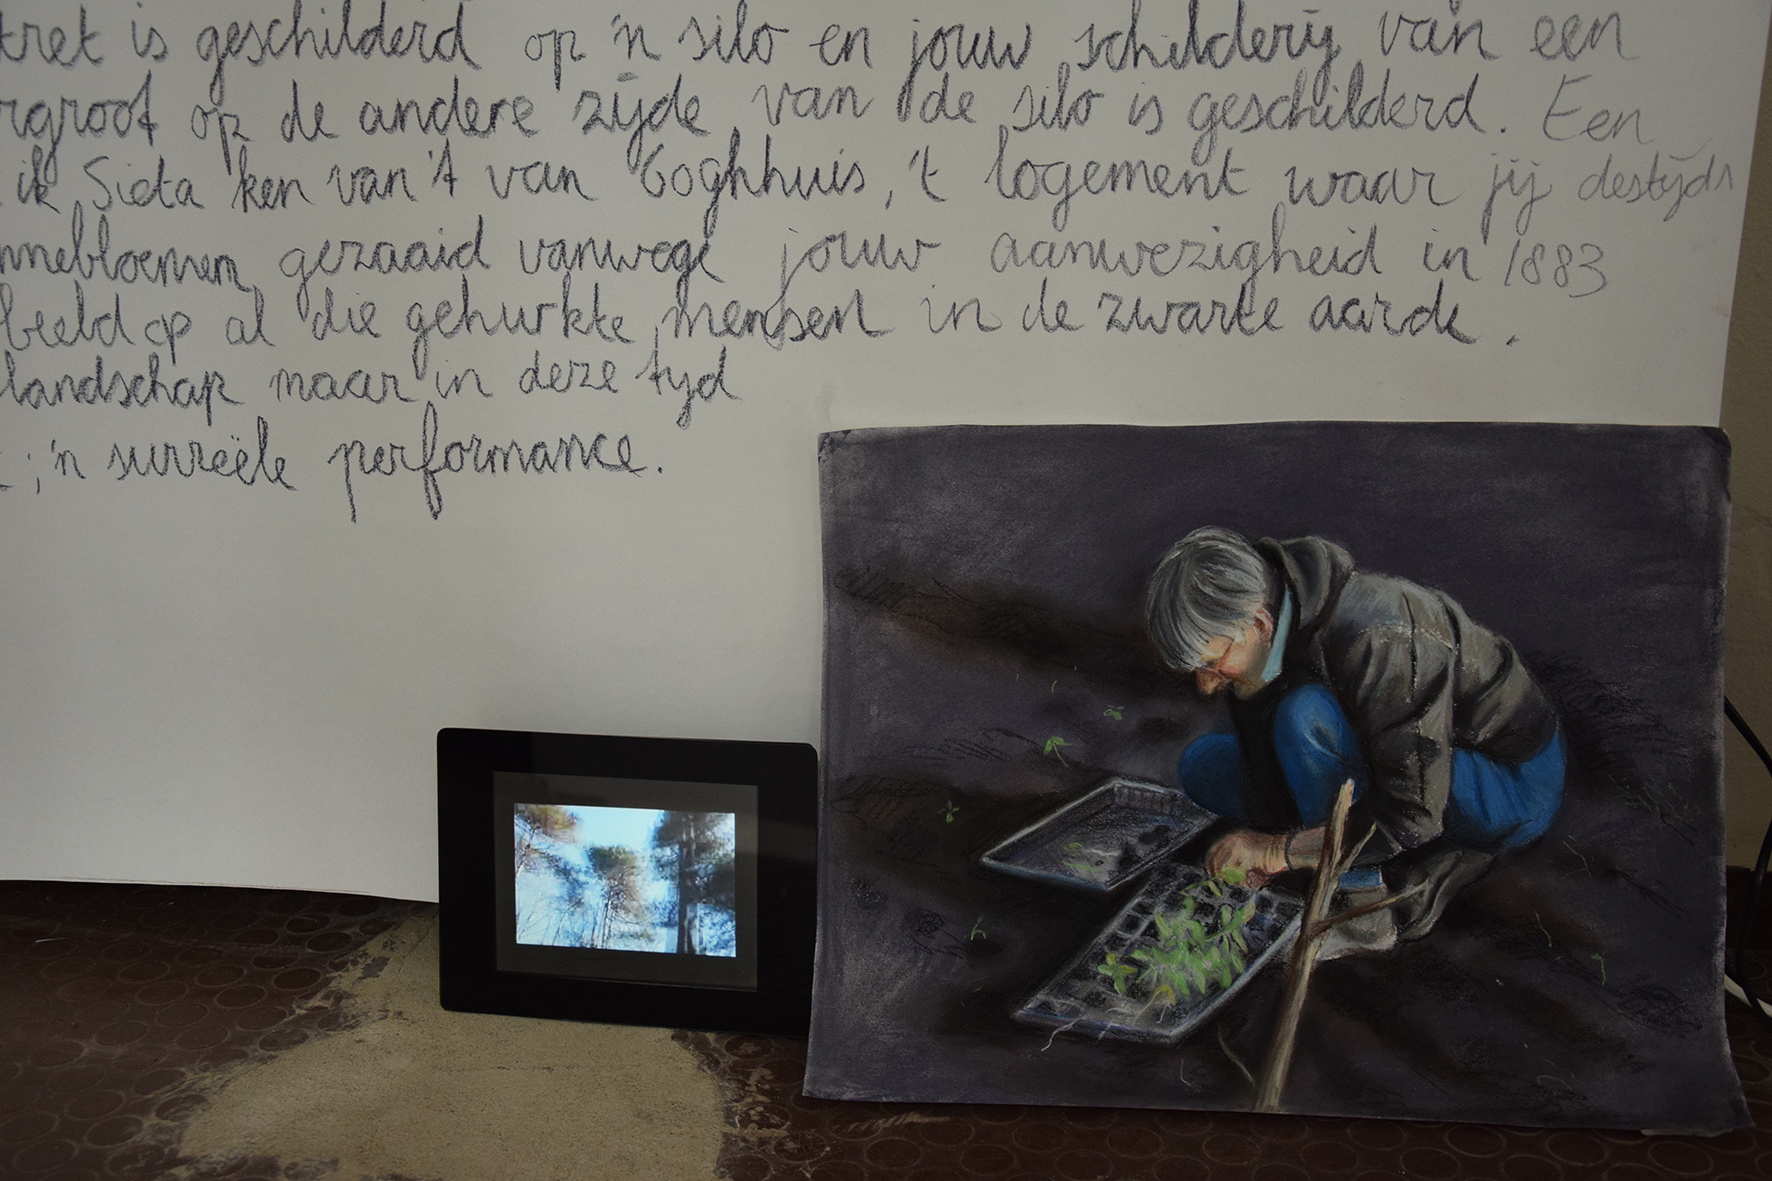 tret is geschilderd op 'n silo en jouw schilderij van een
rgroot op de andere zijde van de silo is geschilderd. Een
ik Sieta ken van 't van Goghhuis, 't logement waar jij destijds
nnebloemen gezaaid vanwege jouw aanwezigheid in 1883
beeld op al die gehurkte mensen in de zwarte aarde.
landschap maar in deze tyd
; 'n surreële performance.